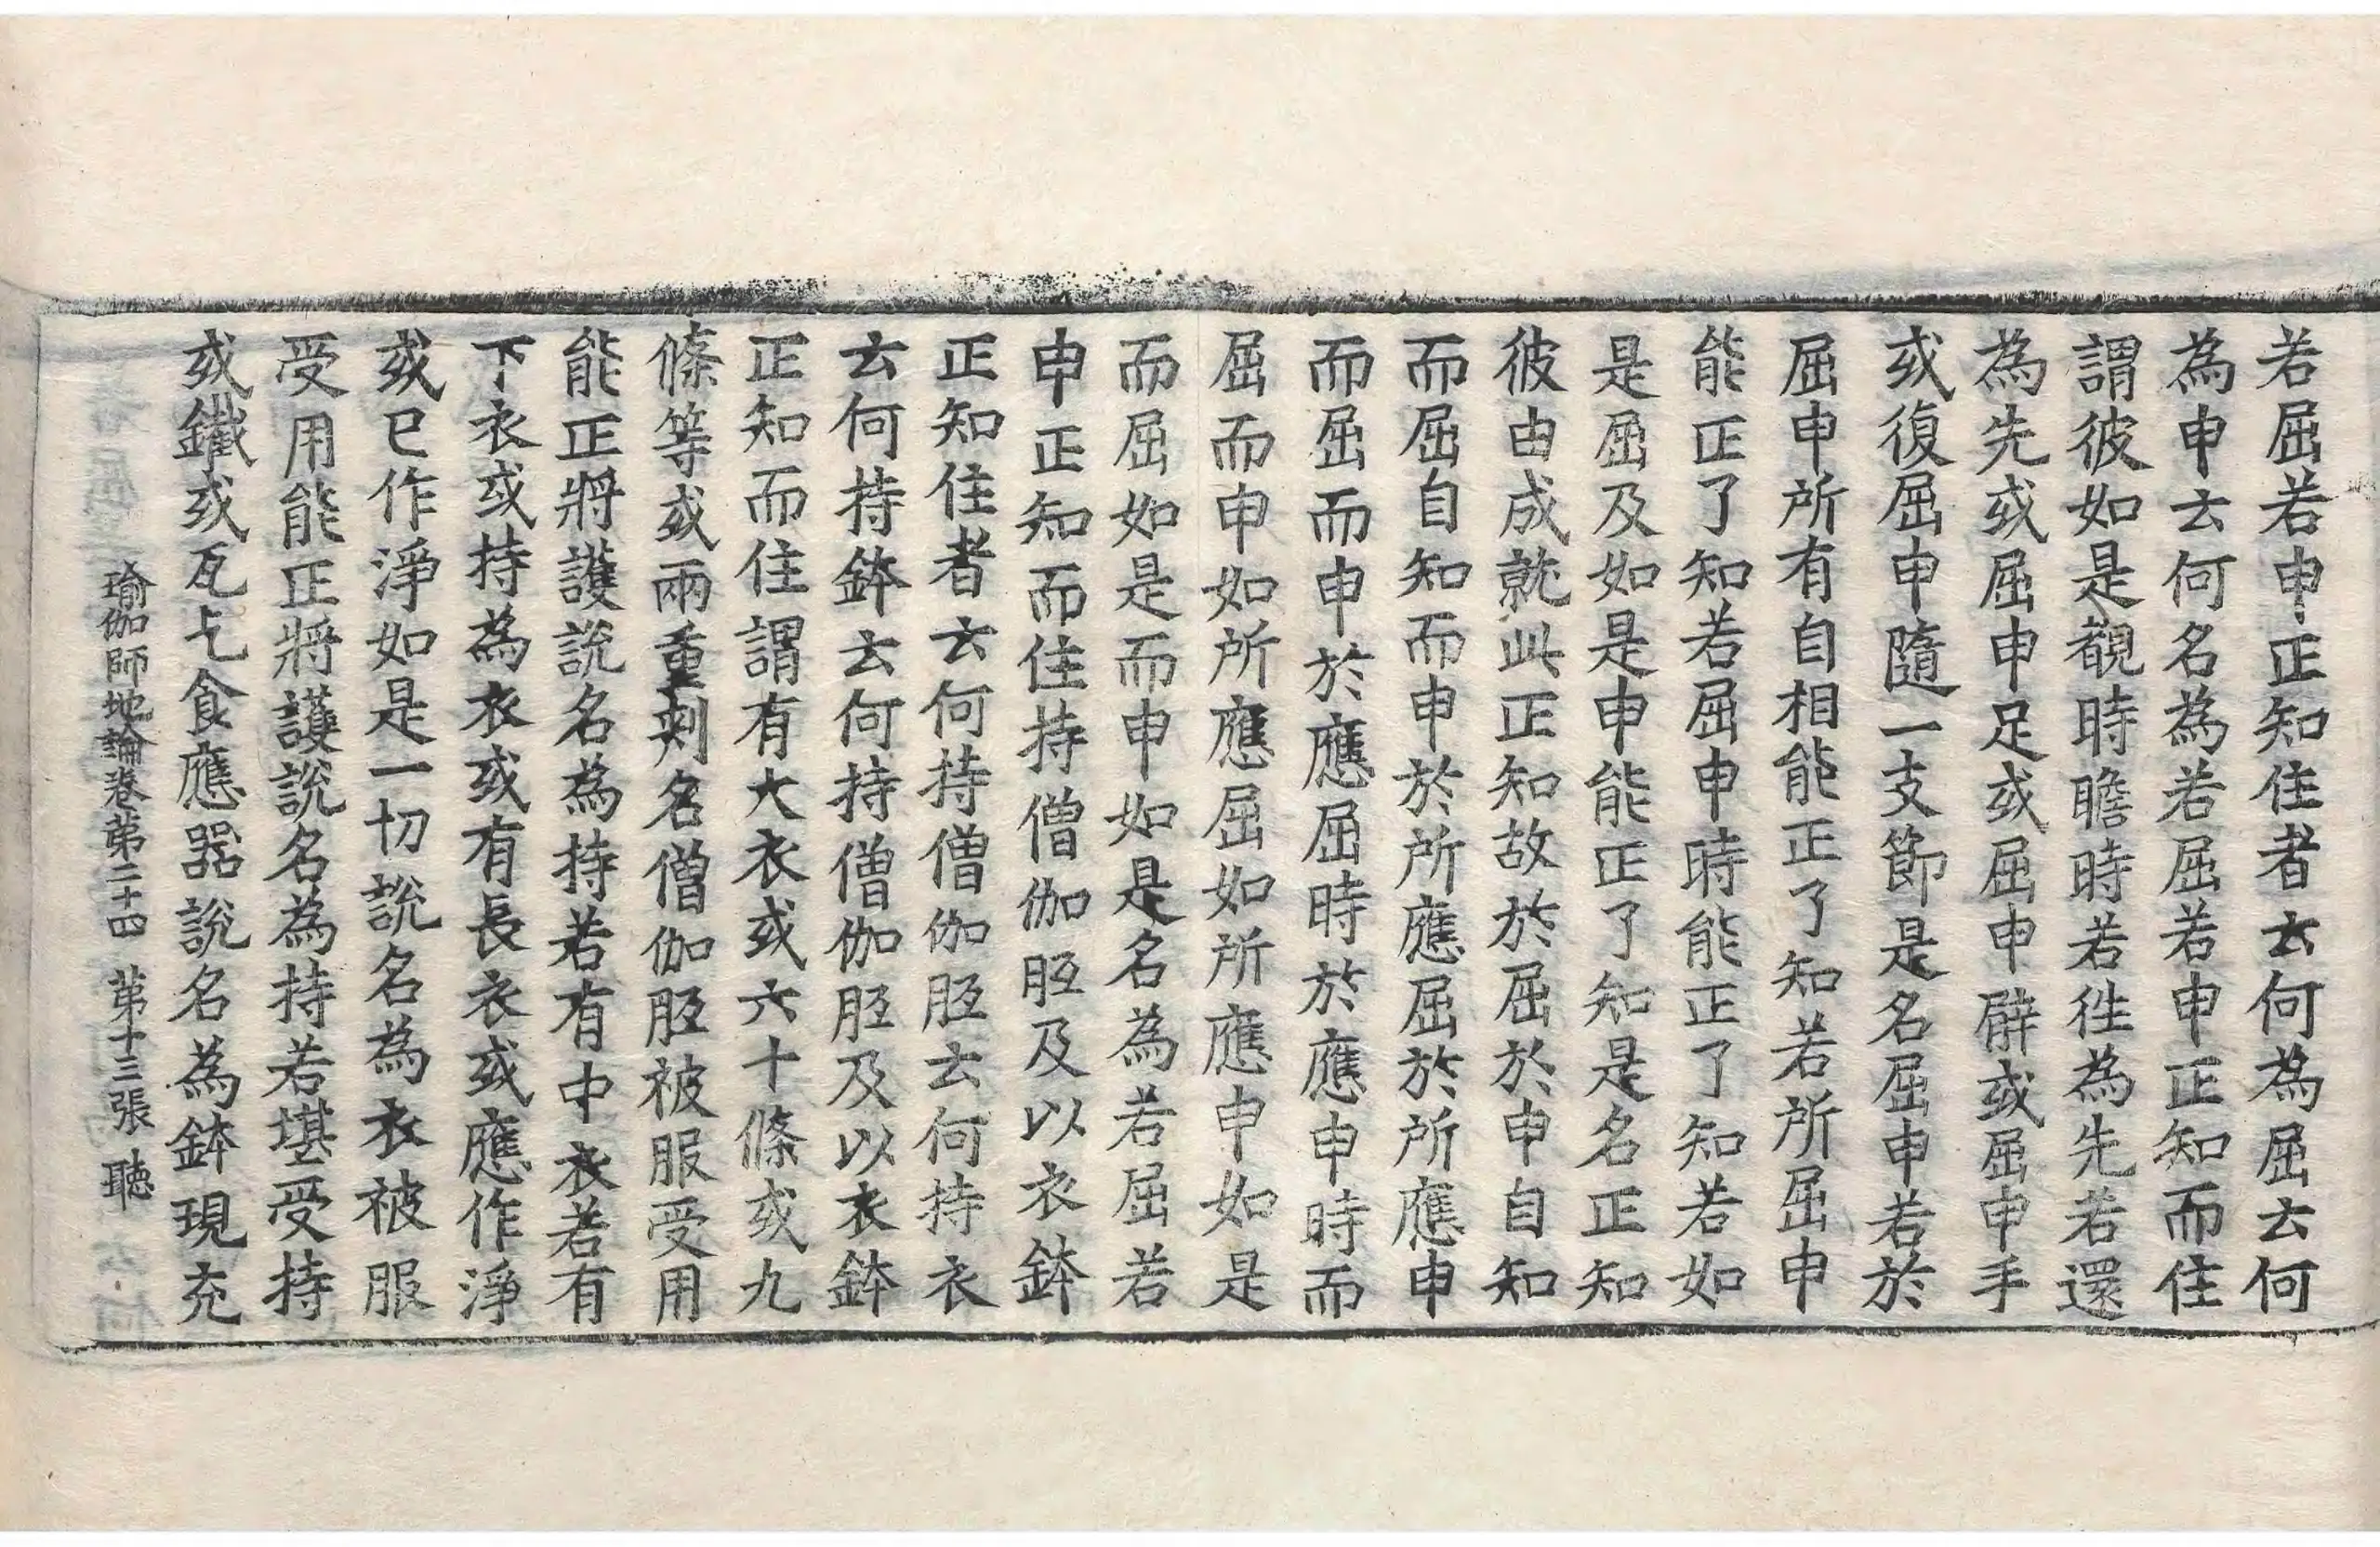 若屈若申正知住者云何為屈云何
為申云何名為若屈若申正知而住
謂彼如是覩時瞻時若往為先若還
為先或屈申足或屈申臂或屈申手
或復屈申隨一支節是名屈申若於
屈申所有自相能正了知若所屈申
能正了知若屈申時能正了知若如
是屈及如是申能正了知是名正知
彼由成就此正知故於屈於申自知
而屈自知而申於所應屈於所應申
而屈而申於應屈時於應申時而
屈而申如所應屈如所應申如是
而屈如是而申如是名為若屈若
申正知而住持僧伽胝及以衣鉢
正知住者云何持僧伽胝云何持衣
云何持鉢云何持僧伽胝及以衣鉢
正知而住謂有大衣或六十條或九
條等或兩重刾名僧伽胝被服受用
能正將護說名為持若有中衣若有
下衣或持為衣或有長衣或應作淨
或已作淨如是一切說名為衣被服
受用能正將護說名為持若堪受持
或鐵或瓦乞食應器說名為鉢現充
瑜伽師地論卷第二十四 第十三張 聽